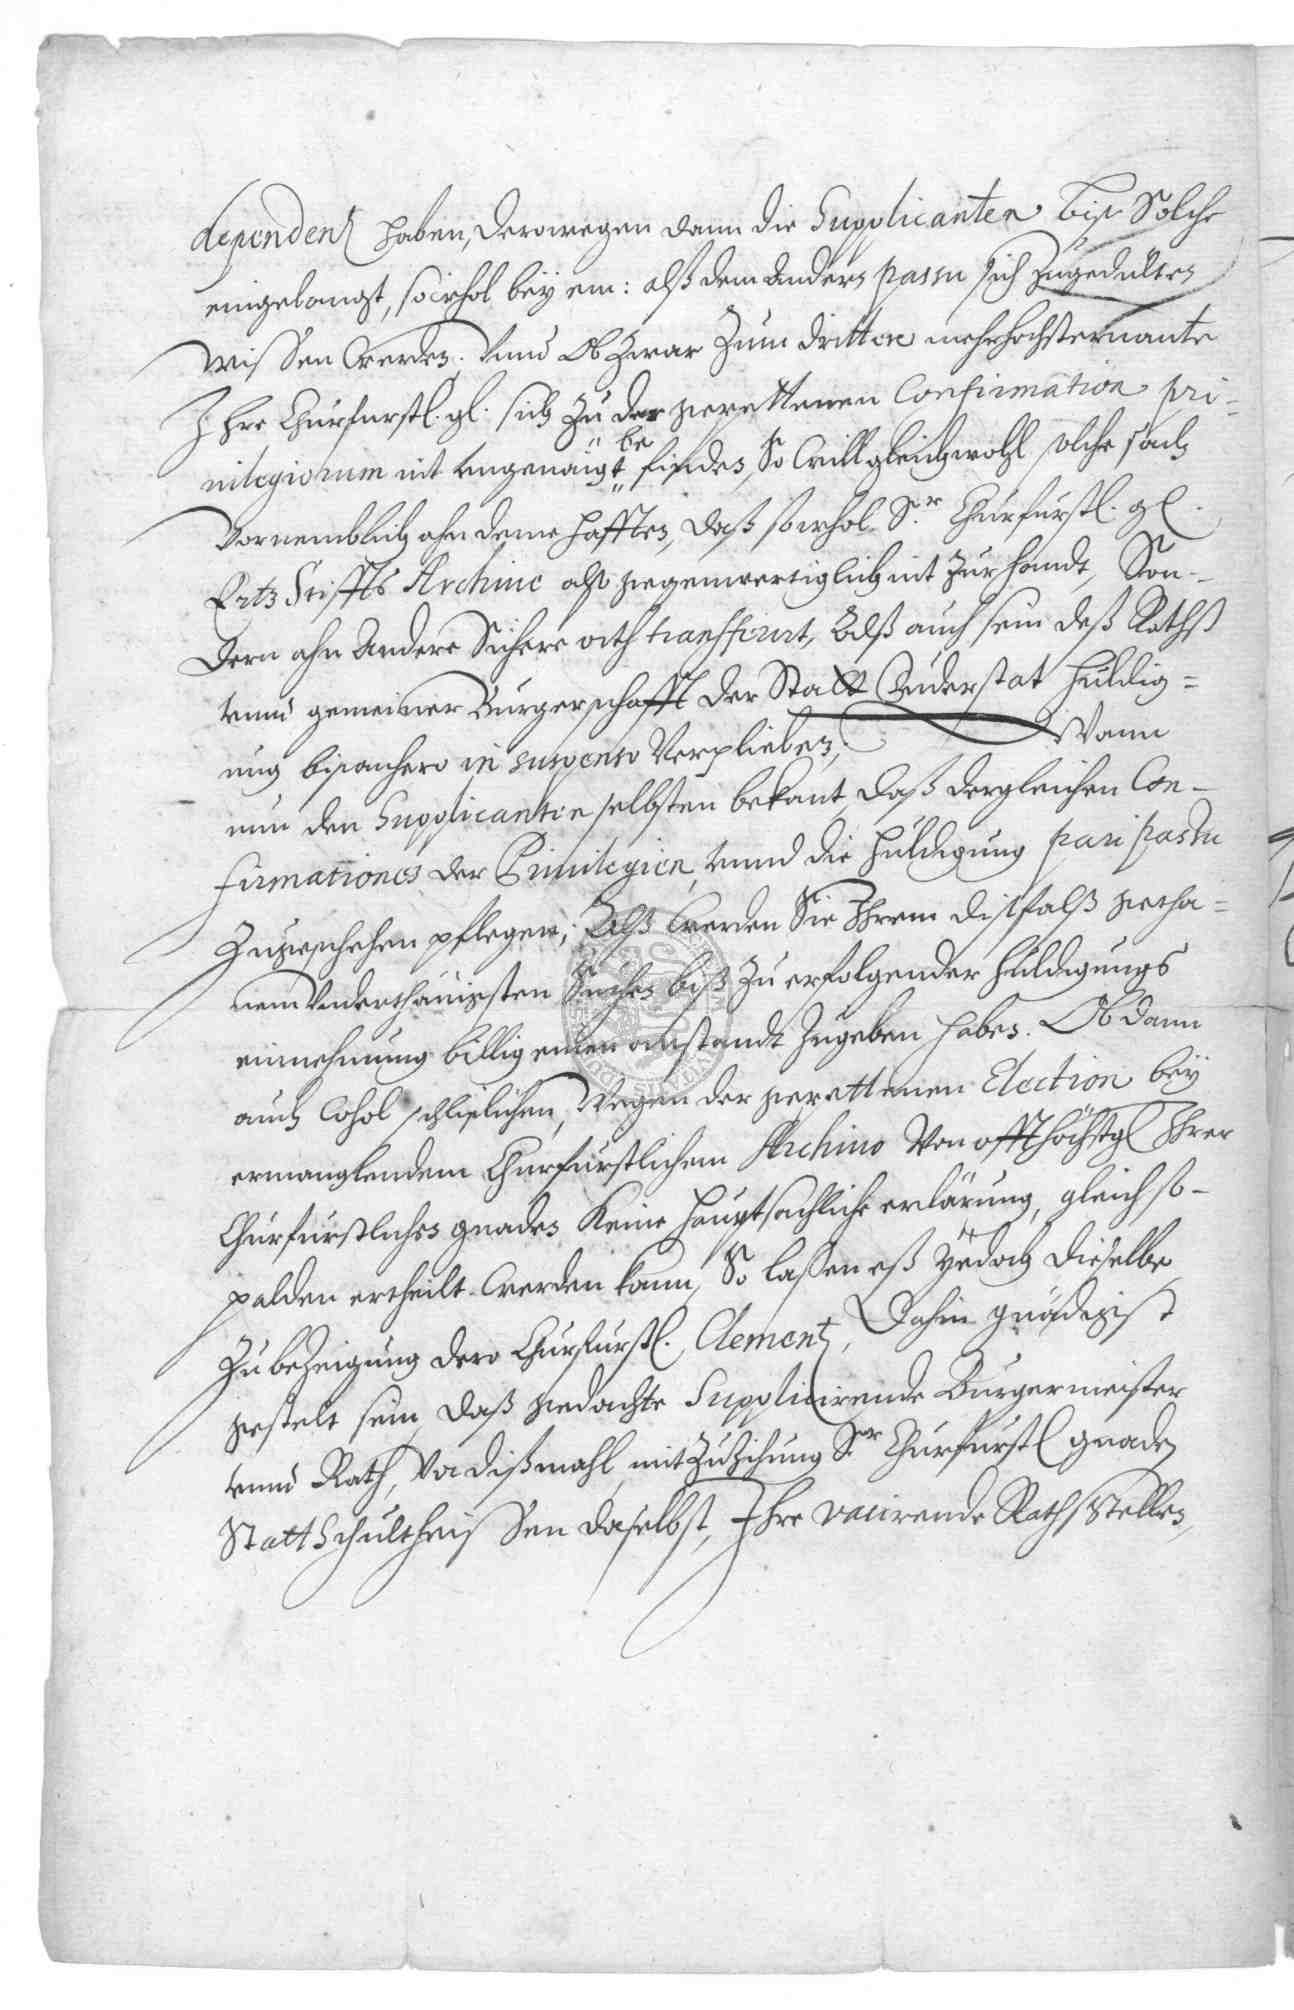 dependenz haben, derowegen dann die Supplicanten biß Solche
eingelangt, sowohl bey ein: alß dem andern passu sich zugedulten
wissen werden. Vnnd Ob zwar Zum dritten mehrhöchsternante
Ihre Churfürstl. gl. sich zu der gebettenen Confirmation pri=
uilegiorum nit vngenaigt befinden, So will gleichwohl solche sach
vornemblich ahn deme hafften, daß sowohl Sr. Churfürstl. gl.
Ertz Stiffts Archiue alß gegenwertiglich nit zur handt, Son-
dern ahn andere Sichere orth transferirt, Alß auch sein deß Raths
vnnd gemeiner Burgerschafft der Statt Duderstat huldig=
ung bißanhero in suspenso Verplieben; Wann
nun den Supplicanten selbsten bekant, daß dergleichen Con-
firmationes der Priuilegien, vnnd die huldigung pari passu
Zugeschehen pflegen; Alß werden Sie Ihrem dißfalß getha=
nem Vnderthänigsten Suchen biß zu erfolgender huldigungs
einnehmung billig einen anstandt Zugeben haben. Ob dann
auch wohl schließlichen, Wegen der gebettenen Election bey
ermanglendem Churfürstlichem Archiuo Von offthöchstgl Ihrer
Churfürstlichen gnaden Keine hauptsachliche erklärung, gleich so-
palden ertheilt werden kann, So lassen eß yedoch dieselbe
Zu bezeigung dero Churfürstl. Clementz, Dahin gnädigist
gestelt sein, daß gedachte Supplicirende Burgermeister
vnnd Rath, vor dißmahl mit Zuzihung Sr Churfürstl gnaden
Statt Schultheissen daselbst, Ihre vacirende RathsStellen,